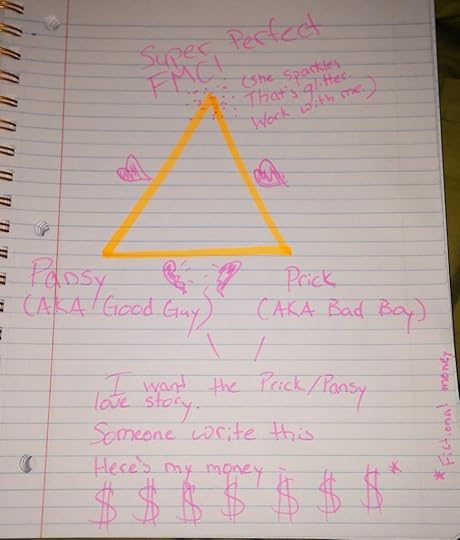 Super Perfect
FMC!
(she sparkles
That's glitter.
Work with me.)
Pansy
(AKA Good Guy)
Prick
(AKA Bad Boy)
I want the Prick/Pansy
love story.
Someone write this
Here's my money -
$ $ $ $ $ $ $*
*Fictional money